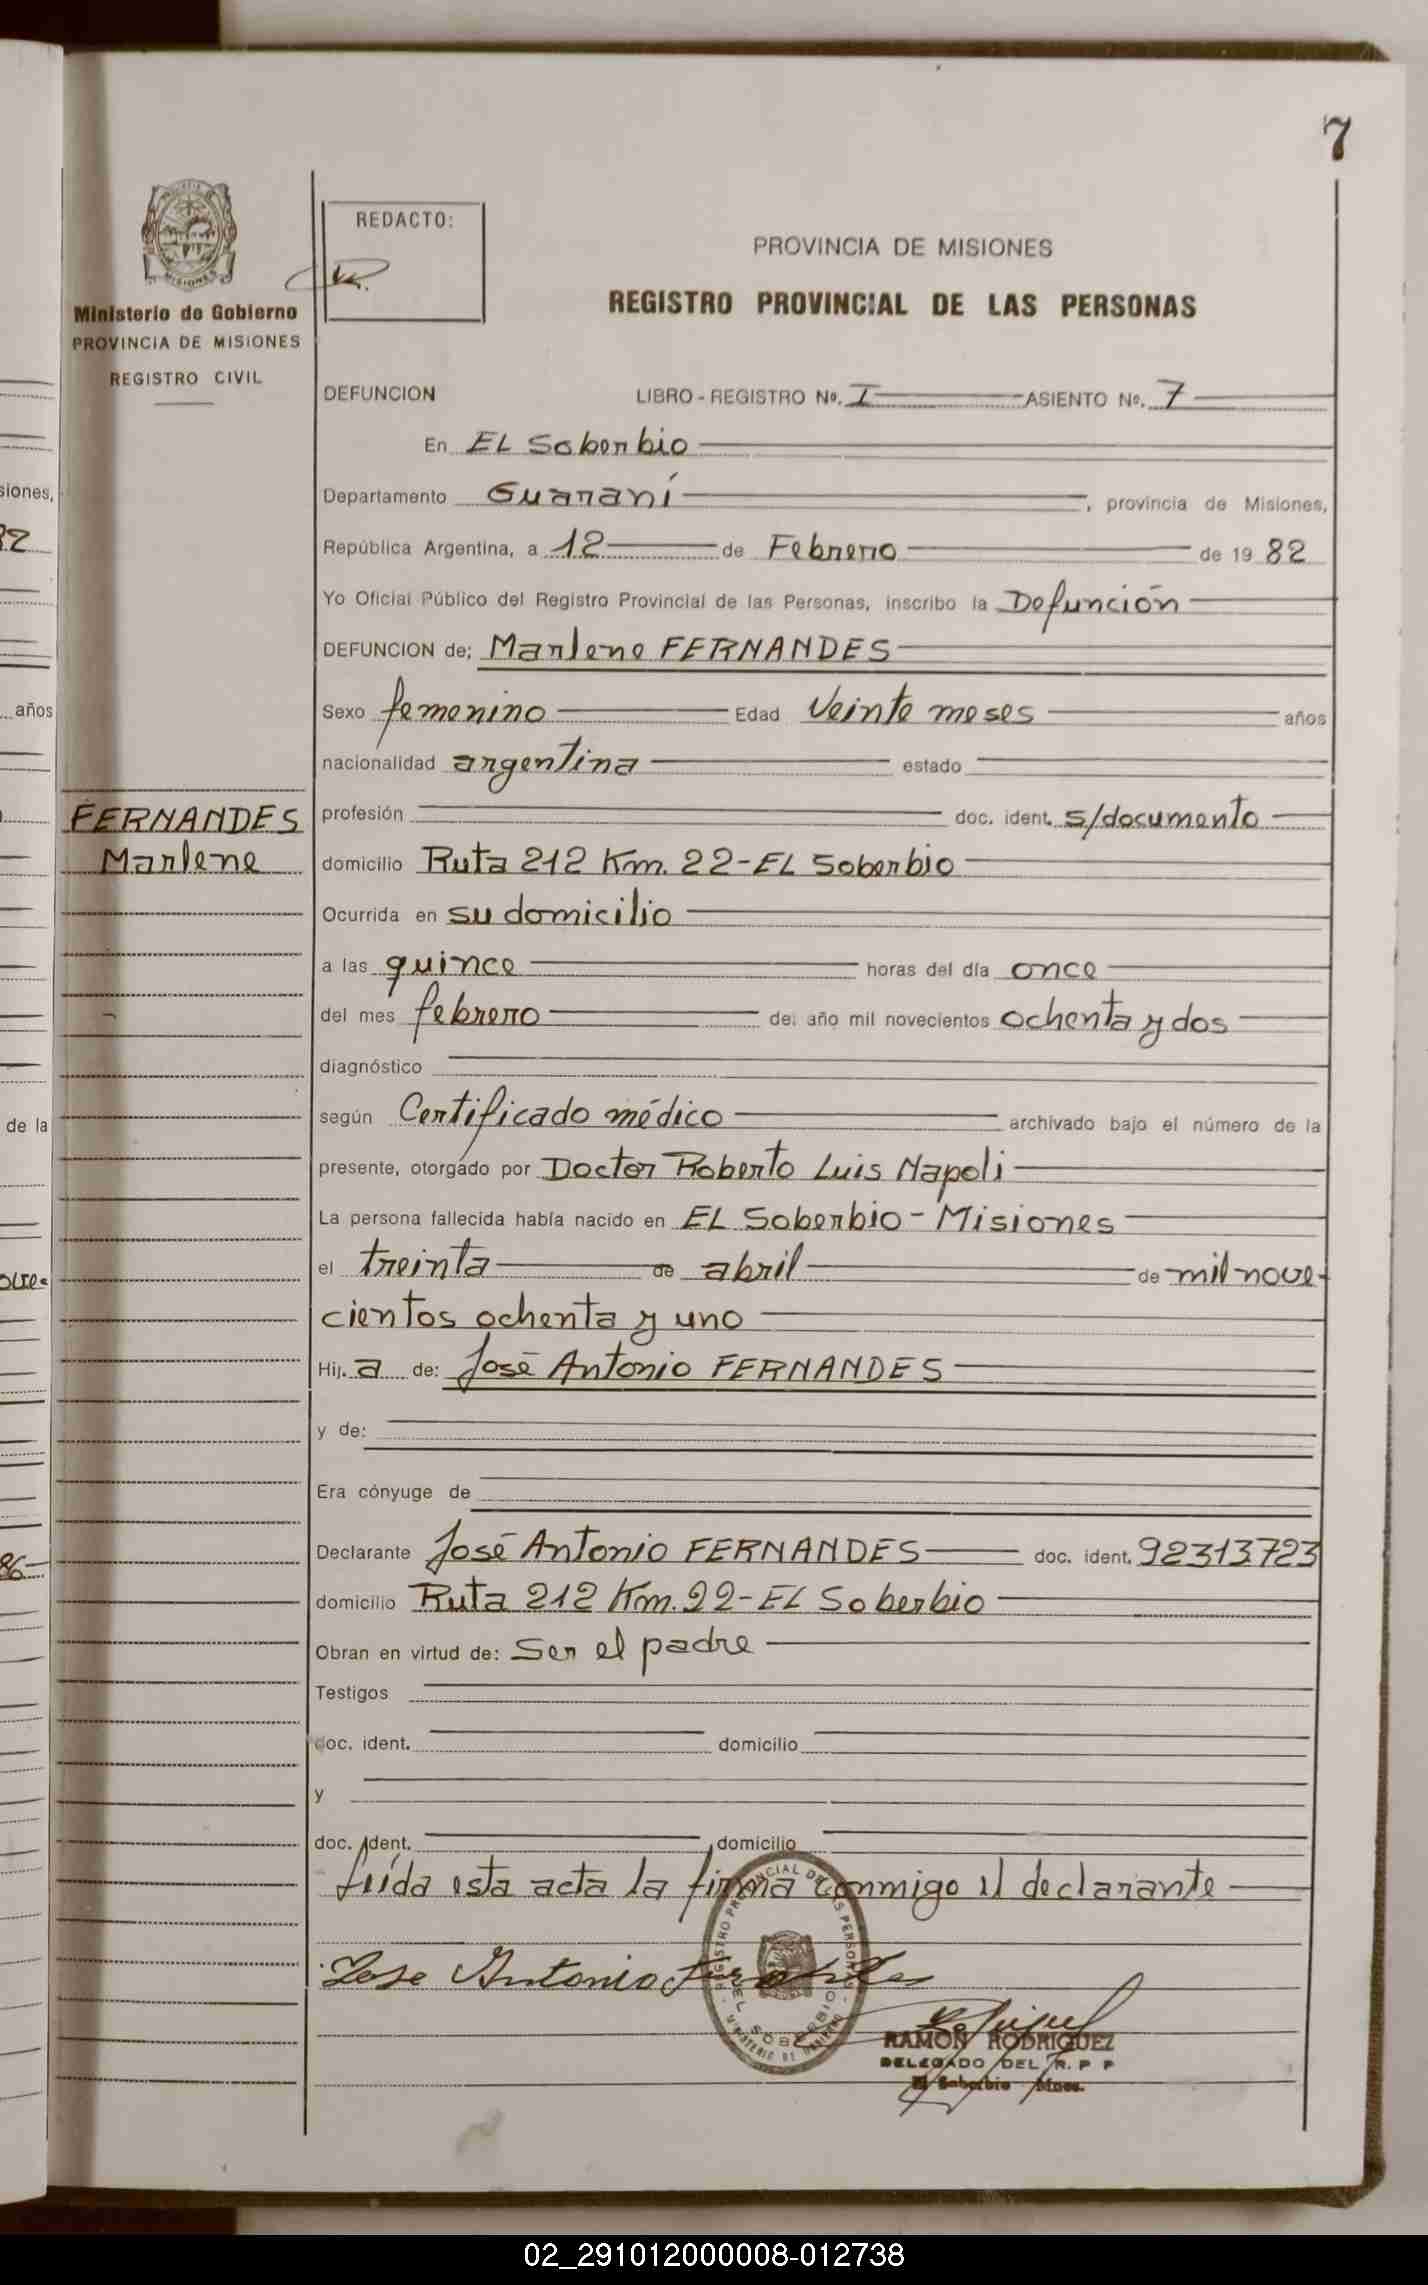 7
REDACTO:
MISIONES
Ministerio de Gobierno
PROVINCIA DE MISIONES
REGISTRO CIVIL
PROVINCIA DE MISIONES
REGISTRO PROVINCIAL DE LAS PERSONAS
DEFUNCION LIBRO - REGISTRO Nº. I ASIENTO Nº. 7
En EL Soberbio
Departamento Guaraní, provincia de Misiones,
República Argentina, a 12 de Febrero de 19 82
Yo Oficial Público del Registro Provincial de las Personas, inscribo la Defunción
DEFUNCION de: Marlene FERNANDES
Sexo femenino Edad Veinte meses años
nacionalidad argentina estado
profesión doc. ident. s/documento
FERNANDES
Marlene
domicilio Ruta 212 Km. 22-EL Soberbio
Ocurrida en su domicilio
a las quince horas del día once
del mes febrero del año mil novecientos ochenta y dos
diagnóstico
según Certificado médico archivado bajo el número de la
presente, otorgado por Doctor Roberto Luis Napoli
La persona fallecida había nacido en EL Soberbio - Misiones
el treinta de abril de mil nove-
cientos ochenta y uno
Hij. a de: José Antonio FERNANDES
y de:
Era cónyuge de
Declarante José Antonio FERNANDES doc. ident. 92313723
domicilio Ruta 212 Km. 22-EL Soberbio
Obran en virtud de: Ser el padre
Testigos
doc. ident. domicilio
y
doc. ident. domicilio
Leída esta acta la firma conmigo el declarante
REGISTRO PROVINCIAL DE LAS PERSONAS
EL SOBERBIO
MINISTERIO DE GOBIERNO
Jose Antonio Fernandes
RAMON RODRIGUEZ
DELEGADO DEL R. P P
El Soberbio Mnes.
siones,
82
años
de la
86
02_291012000008-012738